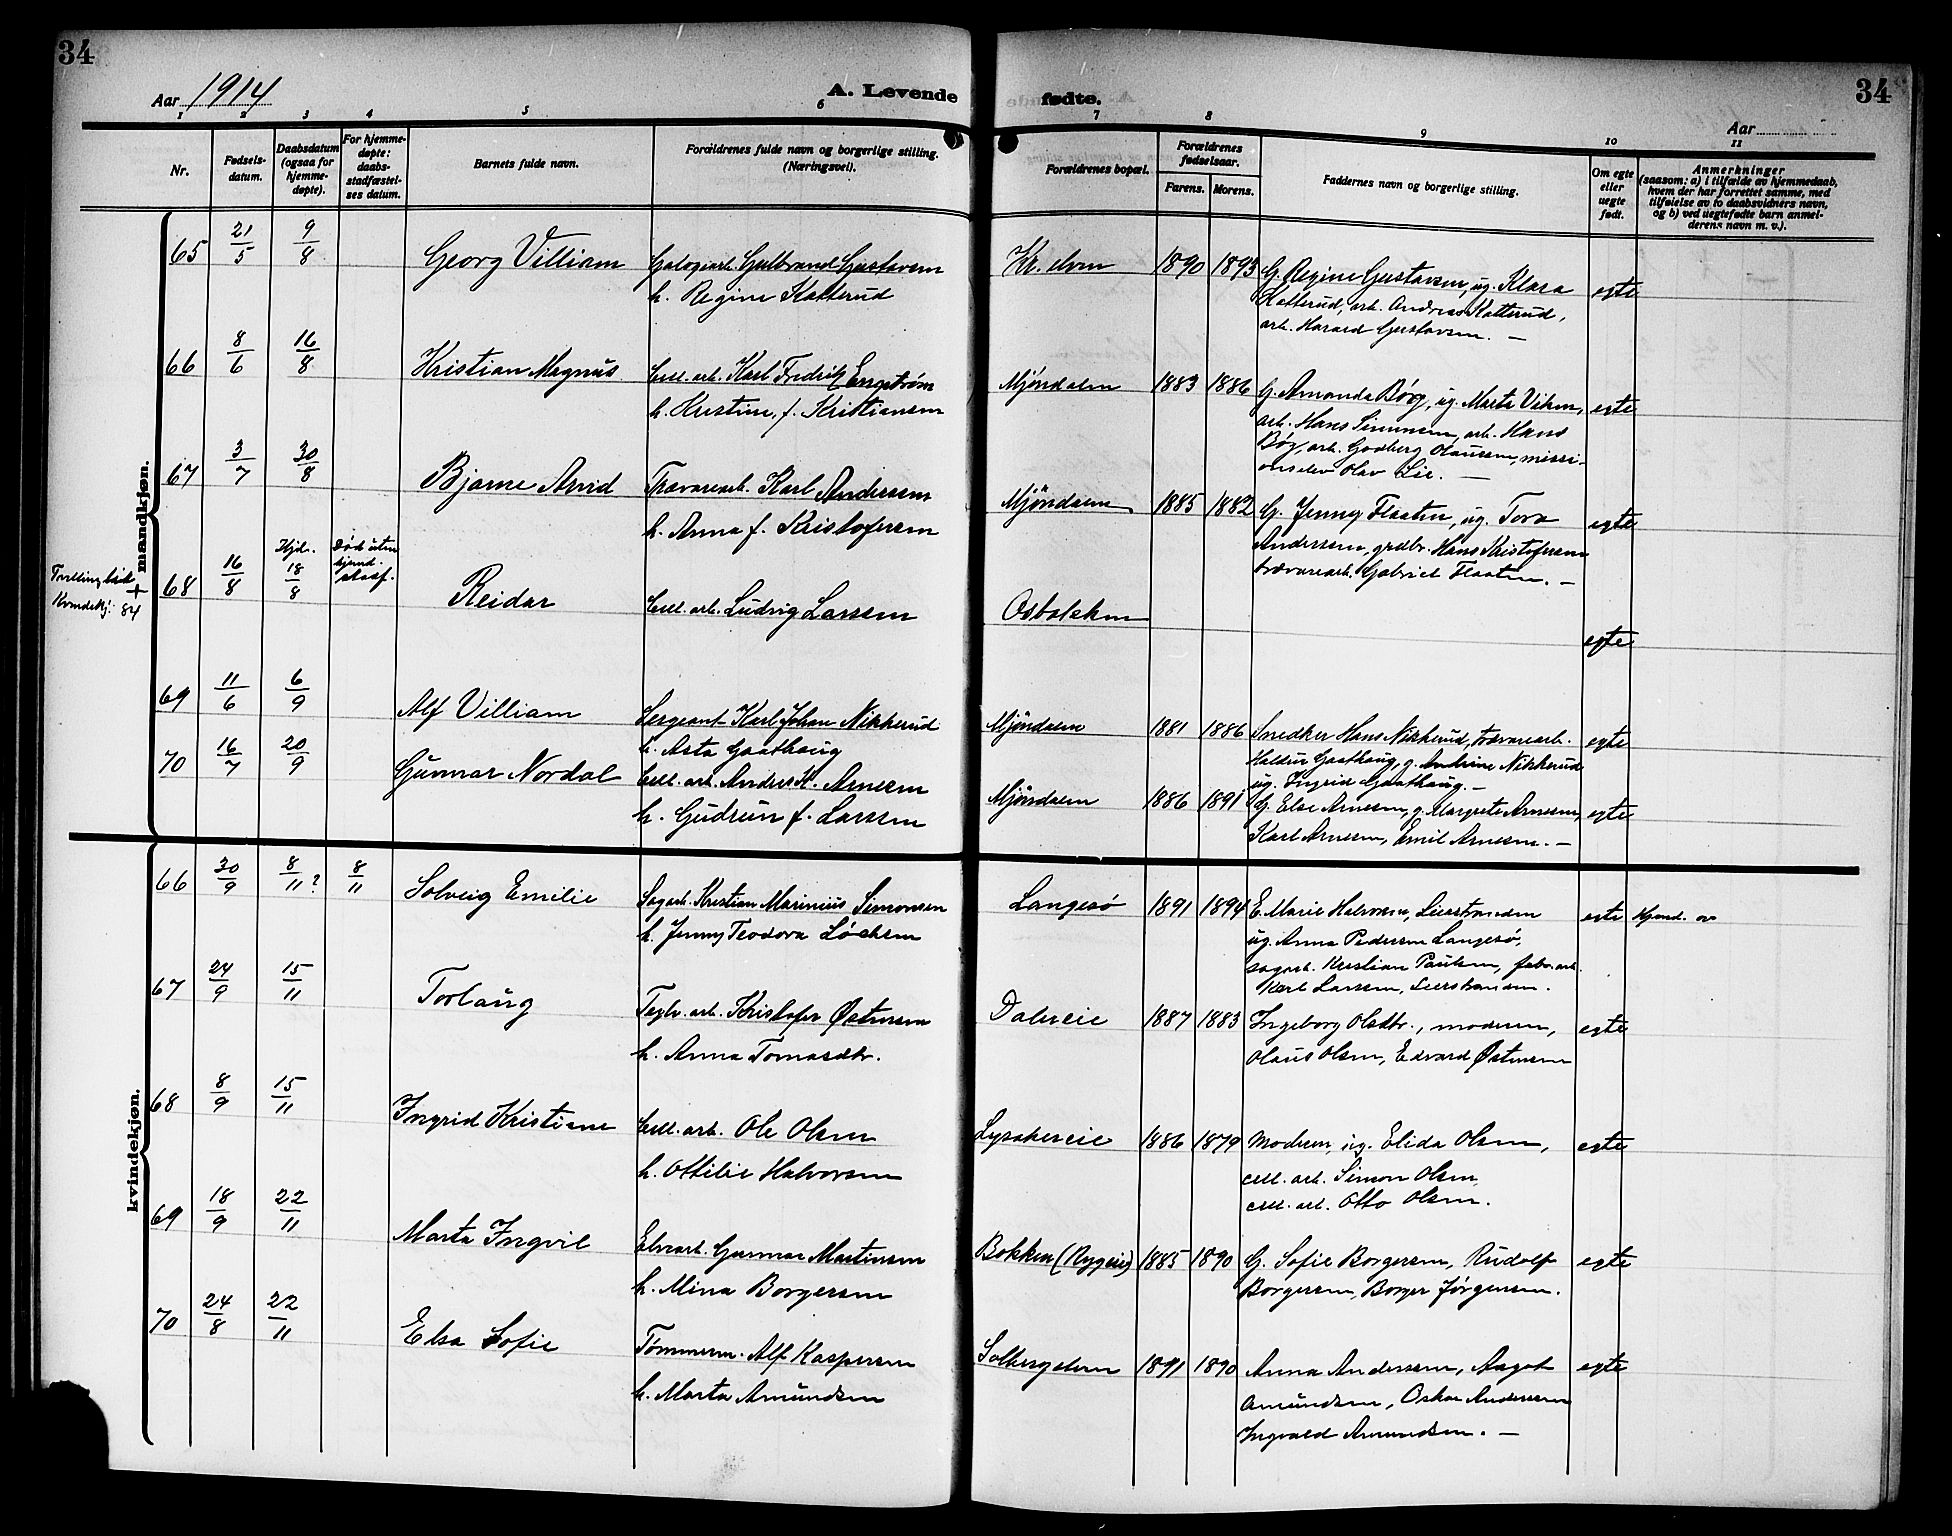 34
34
Aar 1914
A. Levende
fødte.
Aar
1 2 3 4 5 6 7 8 9 10 11
Nr.
Fødsels-
datum.
Daabsdatum
(ogsaa for
hjemme-
døpte).
For hjemme-
døpte:
daabs-
stadfæstel-
ses datum.
Barnets fulde navn.
Forældrenes fulde navn og borgerlige stilling.
(Næringsvei).
Forældrenes bopæl.
Forældrenes
fødselsaar.
Farens. Morens.
Faddernes navn og borgerlige stilling.
Om egte
eller
uegte
født.
Anmerkninger
(saasom: a) i tilfælde av hjemmedaab,
hvem der har forrettet samme, med
tilføielse av to daabsvidners navn,
og b) ved uegtefødte barn anmel-
derens navn m. v.).
mandkjøn.
65 21/5 9/8 Georg Villiam Gulbrand Gustavsen Kr. elven 1890 1893 G. Regine Gustavsen, ug. Klara egte
h. Regine Katterud Katterud, arb. Andreas Katterud,
arb. Harald Gustavsen. —
66 8/6 16/8 Kristian Magnus Cell. arb. Karl Fredrik Engstrøm Mjøndalen 1883 1886 G. Amanda Børg, ug. Marta Viken, egte
h. Kristine, f. Kristiansen arb. Hans Simensen, arb. Hans
Bøg, arb. Godberg Olaussen, missi-
onselev Olav Lie. —
67 3/7 30/8 Bjarne Arvid Trævarearb. Karl Andersen Mjøndalen 1885 1882 G. Jenny Flaaten, ug. Tora egte
h. Anna f. Kristofersen Andersen, grdbr. Hans Kristofersen
trævarearb. Gabriel Flaaten. —
Tvilling
Kvindekj. 84
+ 68 16/8 Hjd. 18/8 Død uten
stadf.
Reidar Cell. arb. Ludvig Larsen egte
69 11/6 6/9 Alf Villiam Sergeant Karl Johan Nikkerud Mjøndalen 1881 1886 Snedker Hans Nikkerud, trævarearb. egte
h. Asta Gaathaug Gaathaug, g. Andrine Nikkerud
ug. Ingrid Gaathaug. —
70 16/7 20/9 Gunnar Nordal Cell. arb. Andreas K. Arnesen Mjøndalen 1886 1891 G. Else Arnesen, g. Margrete Arnesen, egte
h. Gudrun f. Larsen Karl Arnesen, Emil Arnesen. —
kvindekjøn.
66 30/9 8/11? 8/11 Solveig Emilie Sagarb. Kristian Marinius Simonsen Langesø 1891 1894 E. Marie Halvorsen, Lierstranden egte Hjemd. av
h. Jenny Teodora ug. Anna Pedersen Langesø,
sagarb. Kristian Paulsen, fabr. arb.
Karl Larsen, Lierstranden.
67 24/9 15/11 Torlaug Teglv. arb. Kristofer Østensen Dalereie 1887 1883 Ingeborg Olsdtr., moderen, egte
h. Anna Tomasdtr. Olaus Olsen, Edvard Østensen
68 8/9 15/11 Ingrid Kristiane Cell. arb. Ole Olsen Lysakereie 1886 1879 Moderen, ug. Elida Olsen, egte
h. Ottilie Halvorsen cell. arb. Simon Olsen,
cell. arb. Otto Olsen.
69 18/9 22/11 Marta Ingvil Elvearb. Gunnar Martinsen Bokken (Rygeie) 1885 1890 G. Sofie Borgersen, Rudolf egte
h. Mina Borgersen Borgersen, Borger Jørgensen.
70 24/8 22/11 Elsa Sofie Tømmerm. Alf Kaspersen Solbergelven 1891 1890 Anna Andersen, Aagot egte
h. Marta Amundsen Amundsen, Oskar Andersen
Ingvald Amundsen. —